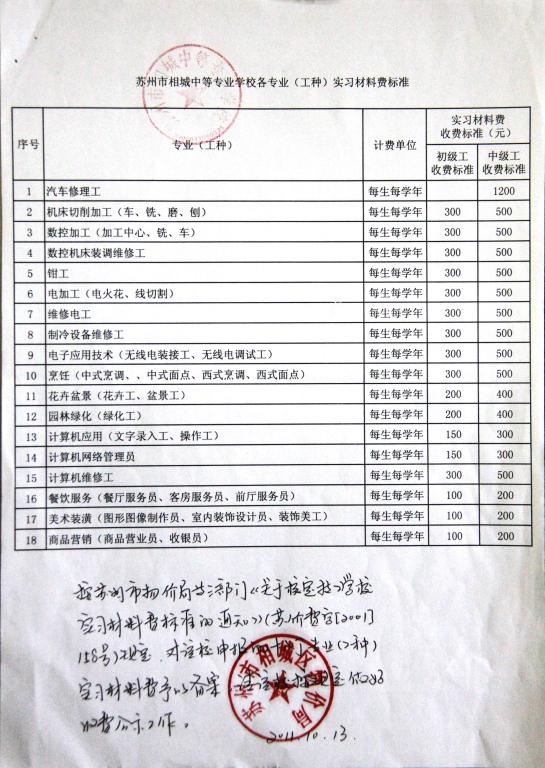 苏州市相城中等专业学校各专业（工种）实习材料费标准
序号 专业（工种） 计费单位 实习材料费收费标准（元）
初级工收费标准 中级工收费标准
1 汽车修理工 每生每学年 1200
2 机床切削加工（车、铣、磨、刨） 每生每学年 300 500
3 数控加工（加工中心、铣、车） 每生每学年 300 500
4 数控机床装调维修工 每生每学年 300 500
5 钳工 每生每学年 300 500
6 电加工（电火花、线切割） 每生每学年 300 500
7 维修电工 每生每学年 300 500
8 制冷设备维修工 每生每学年 300 500
9 电子应用技术（无线电装接工、无线电调试工） 每生每学年 300 500
10 烹饪（中式烹调、、中式面点、西式烹调、西式面点） 每生每学年 300 500
11 花卉盆景（花卉工、盆景工） 每生每学年 200 400
12 园林绿化（绿化工） 每生每学年 200 400
13 计算机应用（文字录入工、操作工） 每生每学年 150 300
14 计算机网络管理员 每生每学年 150 300
15 计算机维修工 每生每学年 300 500
16 餐饮服务（餐厅服务员、客房服务员、前厅服务员） 每生每学年 100 200
17 美术装潢（图形图像制作员、室内装饰设计员、装饰美工） 每生每学年 100 200
18 商品营销（商品营业员、收银员） 每生每学年 100 200
按苏州市物价局等三部门《关于核定技工学校
实习材料费标准的通知》（苏价费字[2001]
158号）规定，对该校申报的十八个专业（工种）
实习材料费予以备案
收费公示工作。
苏州市相城区物价局
2011.10.13.